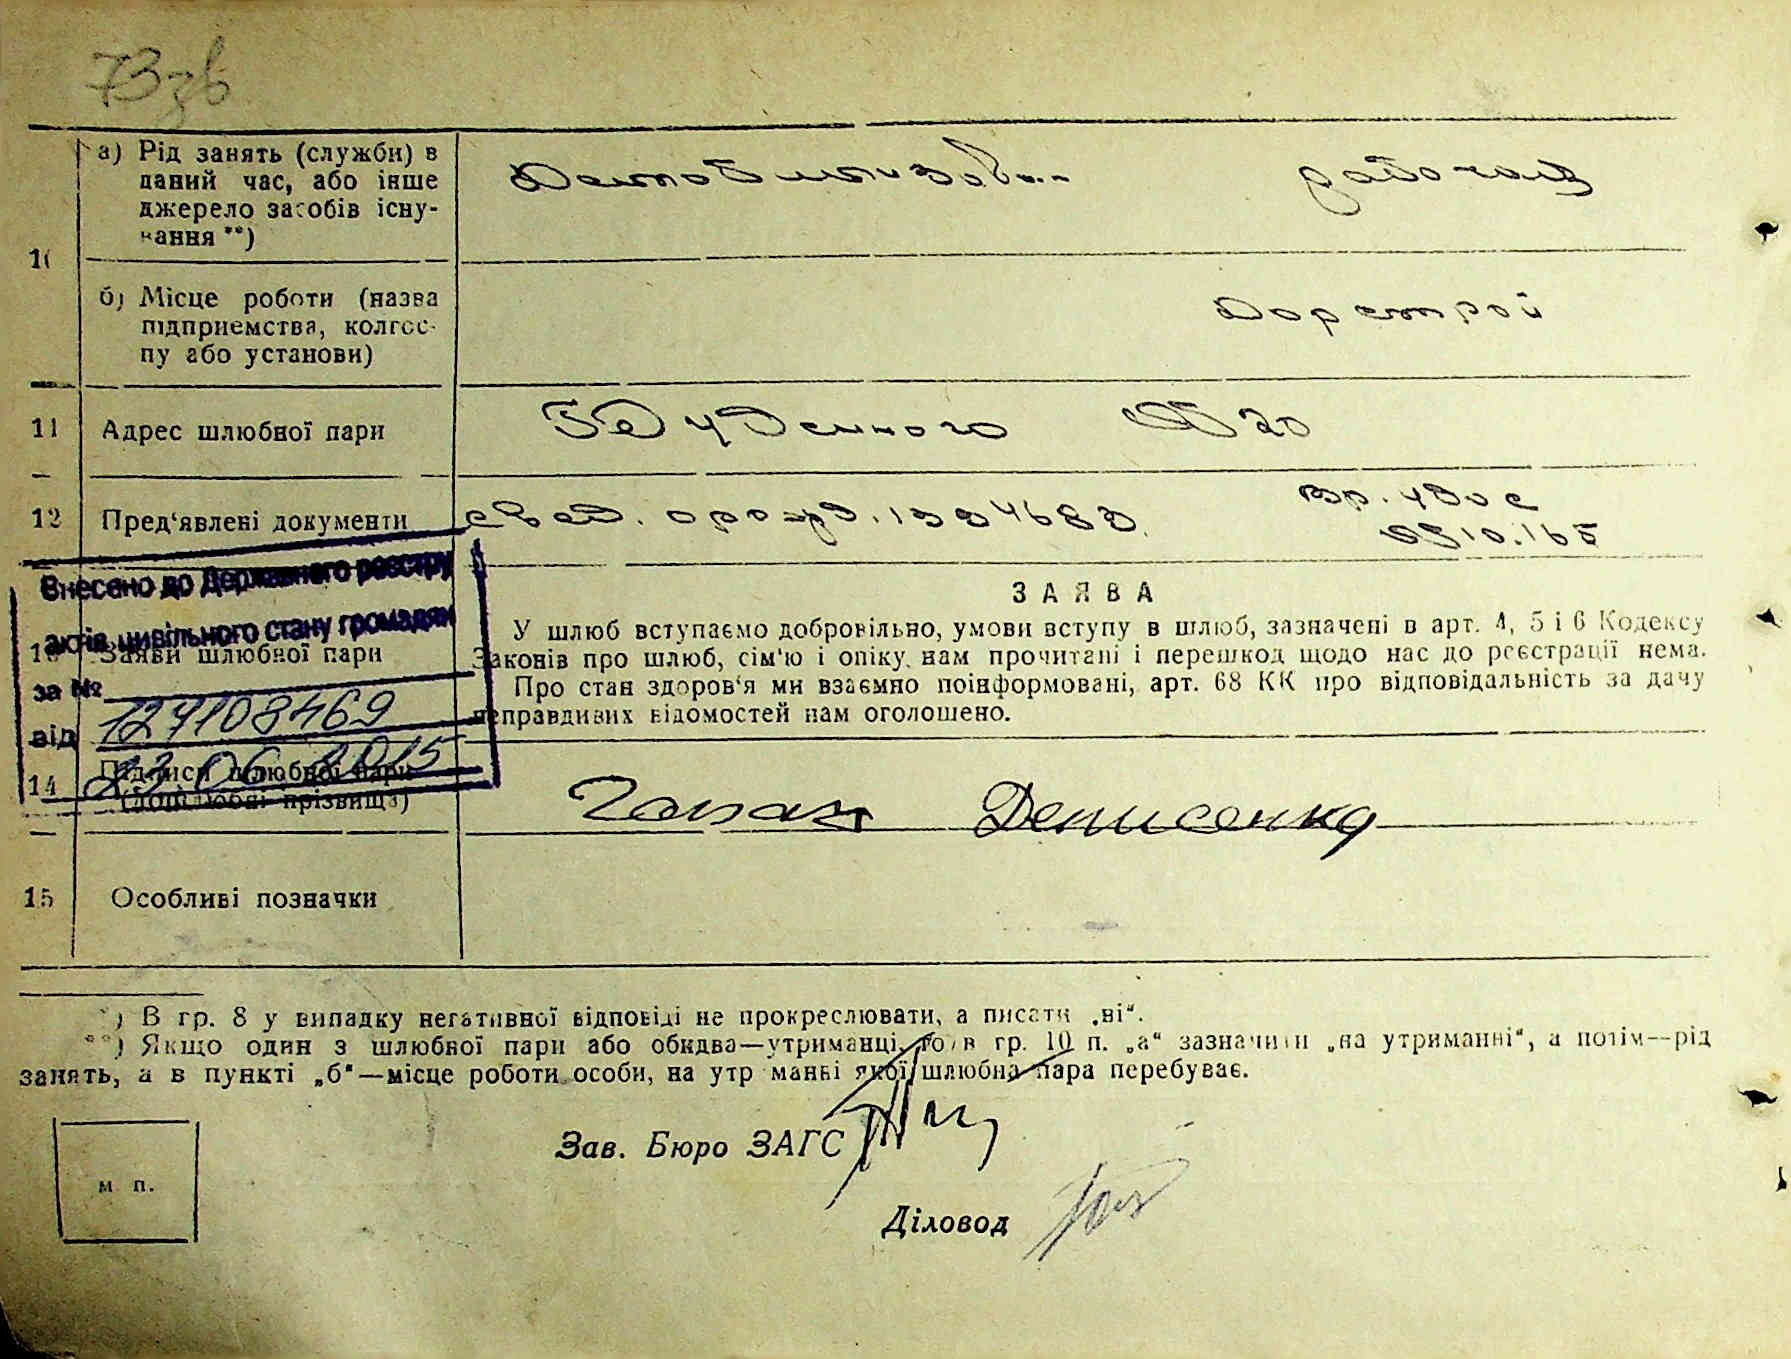 73зв
а) Рід занять (служби) в
даний час, або інше
джерело засобів існу-
вання **)
Демобилизов... рабочая
10
б) Місце роботи (назва
підприємства, колгос-
пу або установи)
Дорстрой
11 Адрес шлюбної пари
20
12 Пред'явлені документи
Внесено до Державного реєстру
актів цивільного стану громадян
за № 124108469
від 23.06.2015
13 Заяви шлюбної пари
ЗАЯВА
У шлюб вступаємо добровільно, умови вступу в шлюб, зазначені в арт. 4, 5 і 6 Кодексу
Законів про шлюб, сім'ю і опіку, нам прочитані і перешкод щодо нас до реєстрації нема.
Про стан здоров'я ми взаємно поінформовані, арт. 68 КК про відповідальність за дачу
неправдивих відомостей нам оголошено.
14 Підписи шлюбної пари
(дошлюбні прізвища)
Денисенко
15 Особливі позначки
*) В гр. 8 у випадку негативної відповіді не прокреслювати, а писати „ні“.
**) Якщо один з шлюбної пари або обидва—утриманці, то в гр. 10 п. „а“ зазначити „на утриманні“, а потім—рід
занять, а в пункті „б“—місце роботи особи, на утриманні якої шлюбна пара перебуває.
Зав. Бюро ЗАГС
м п.
Діловод